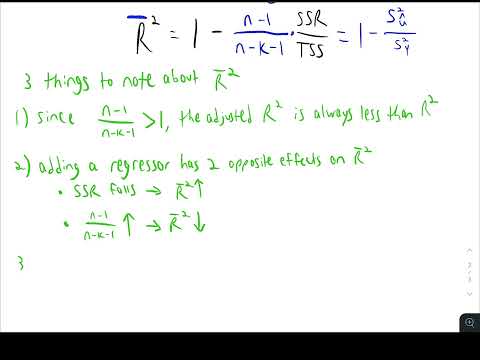 R̅² = 1 - n-1/n-k-1 · SSR/TSS = 1 - s²û/s²Y
3 things to note about R̅²
1) since n-1/n-k-1 > 1, the adjusted R² is always less than R²
2) adding a regressor has 2 opposite effects on R̅²
• SSR falls → R̅² ↑
• n-1/n-k-1 ↑ → R̅² ↓
3